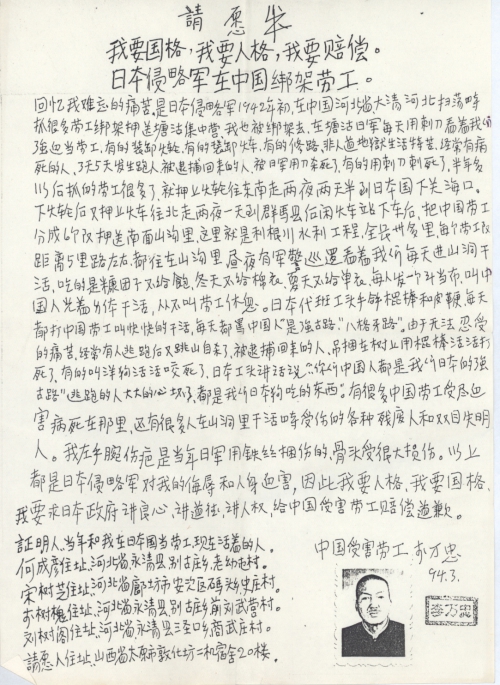 請愿书
我要国格,我要人格,我要赔偿。
日本侵略军在中国绑架劳工。
回忆我难忘的痛苦是日本侵略军1942年初,在中国河北省大清河北扫荡时
抓很多劳工绑架押送塘沽集中营,我也被绑架去,在塘沽日军每天用刺刀看着我们
强迫当劳工,有的装卸火轮,有的装卸火车,有的修路,非人道地狱生活特苦,经常有病
死的人,了天5天发生跑人被逮捕回来的人,被日军用刀杀死了,有的用刺刀刺死了,半年多
以后抓的劳工很多了,就押火轮往东南走两夜两天半到日本国下关海口。
下火轮后又押火车往北走两夜一天到群馬县后闲火车站下车后,把中国劳工
分成6个队押送南面山沟里,这里就是利根川水利工程,全長卅多里,每个劳工队
距离5里路左右都住东山沟里,昼夜有軍警巡邏看着我们每天进山洞干
活,吃的是糠团子不给飽,冬天不给棉衣,夏天不给单衣,每人发一个斗当布,叫中
国人光着身体干活,从不叫劳工休息。日本代班工头手拿棍棒和皮鞭,每天
都打中国劳工叫快快的干活,每天都罵中国人"是强古路,""八格牙路"。由于无法忍受
的痛苦,经常有人逃跑后又跳山自杀了,被逮捕回来的人,吊捆在树上用棍棒活活打
死了,有的叫洋狗活活咬死了,日本工头讲话说:"你们中国人都是我们日本的强
古路","逃跑的人大大的心坏了,都是我们日本狗吃的东西"。有很多中国劳工受尽血
害病死在那里,还有很多人在山洞里干活時受伤的各种残废人和双目失明
人。我左手腕伤疤是当年日軍用铁丝捆伤的,骨头受很大损伤。以上
都是日本侵略軍对我的侮辱和人身血害,因此我要人格,我要国格,
我要求日本政府讲良心,讲道德,讲人权,给中国受害劳工赔偿道歉。
証明人,当年和我在日本国当劳工現在活着的人。
何成彦住址,河北省永清县别古庄乡老幼屯村。
宋树芝住址,河北省廊坊市安次区码头乡史庄村。
李树槐住址,河北省永清县别古庄乡前刘武营村。
刘树阁住址,河北省永清县三圣口乡商武庄村。
請愿人住址,山西省太原市敦化坊二机宿舍20楼。
中国受害劳工 李万忠
94.3.
李万忠